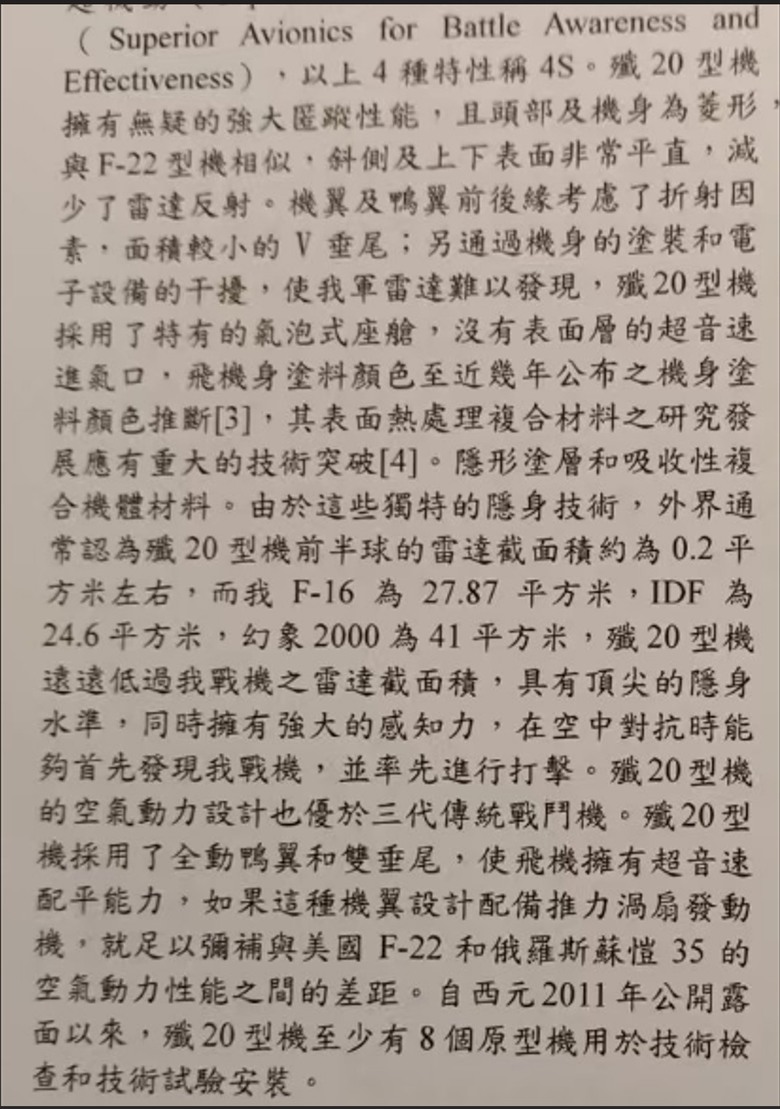 （Superior Avionics for Battle Awareness and
Effectiveness），以上 4 種特性稱 4S。殲 20 型機
擁有無疑的強大匿蹤性能，且頭部及機身為菱形，
與 F-22 型機相似，斜側及上下表面非常平直，減
少了雷達反射。機翼及鴨翼前後緣考慮了折射因
素，面積較小的 V 垂尾；另通過機身的塗裝和電
子設備的干擾，使我軍雷達難以發現，殲 20 型機
採用了特有的氣泡式座艙，沒有表面層的超音速
進氣口，飛機身塗料顏色至近幾年公布之機身塗
料顏色推斷[3]，其表面熱處理複合材料之研究發
展應有重大的技術突破[4]。隱形塗層和吸收性複
合機體材料。由於這些獨特的隱身技術，外界通
常認為殲 20 型機前半球的雷達截面積約為 0.2 平
方米左右，而我 F-16 為 27.87 平方米，IDF 為
24.6 平方米，幻象 2000 為 41 平方米，殲 20 型機
遠遠低過我戰機之雷達截面積，具有頂尖的隱身
水準，同時擁有強大的感知力，在空中對抗時能
夠首先發現我戰機，並率先進行打擊。殲 20 型機
的空氣動力設計也優於三代傳統戰鬥機。殲 20 型
機採用了全動鴨翼和雙垂尾，使飛機擁有超音速
配平能力，如果這種機翼設計配備推力渦扇發動
機，就足以彌補與美國 F-22 和俄羅斯蘇愷 35 的
空氣動力性能之間的差距。自西元 2011 年公開露
面以來，殲 20 型機至少有 8 個原型機用於技術檢
查和技術試驗安裝。